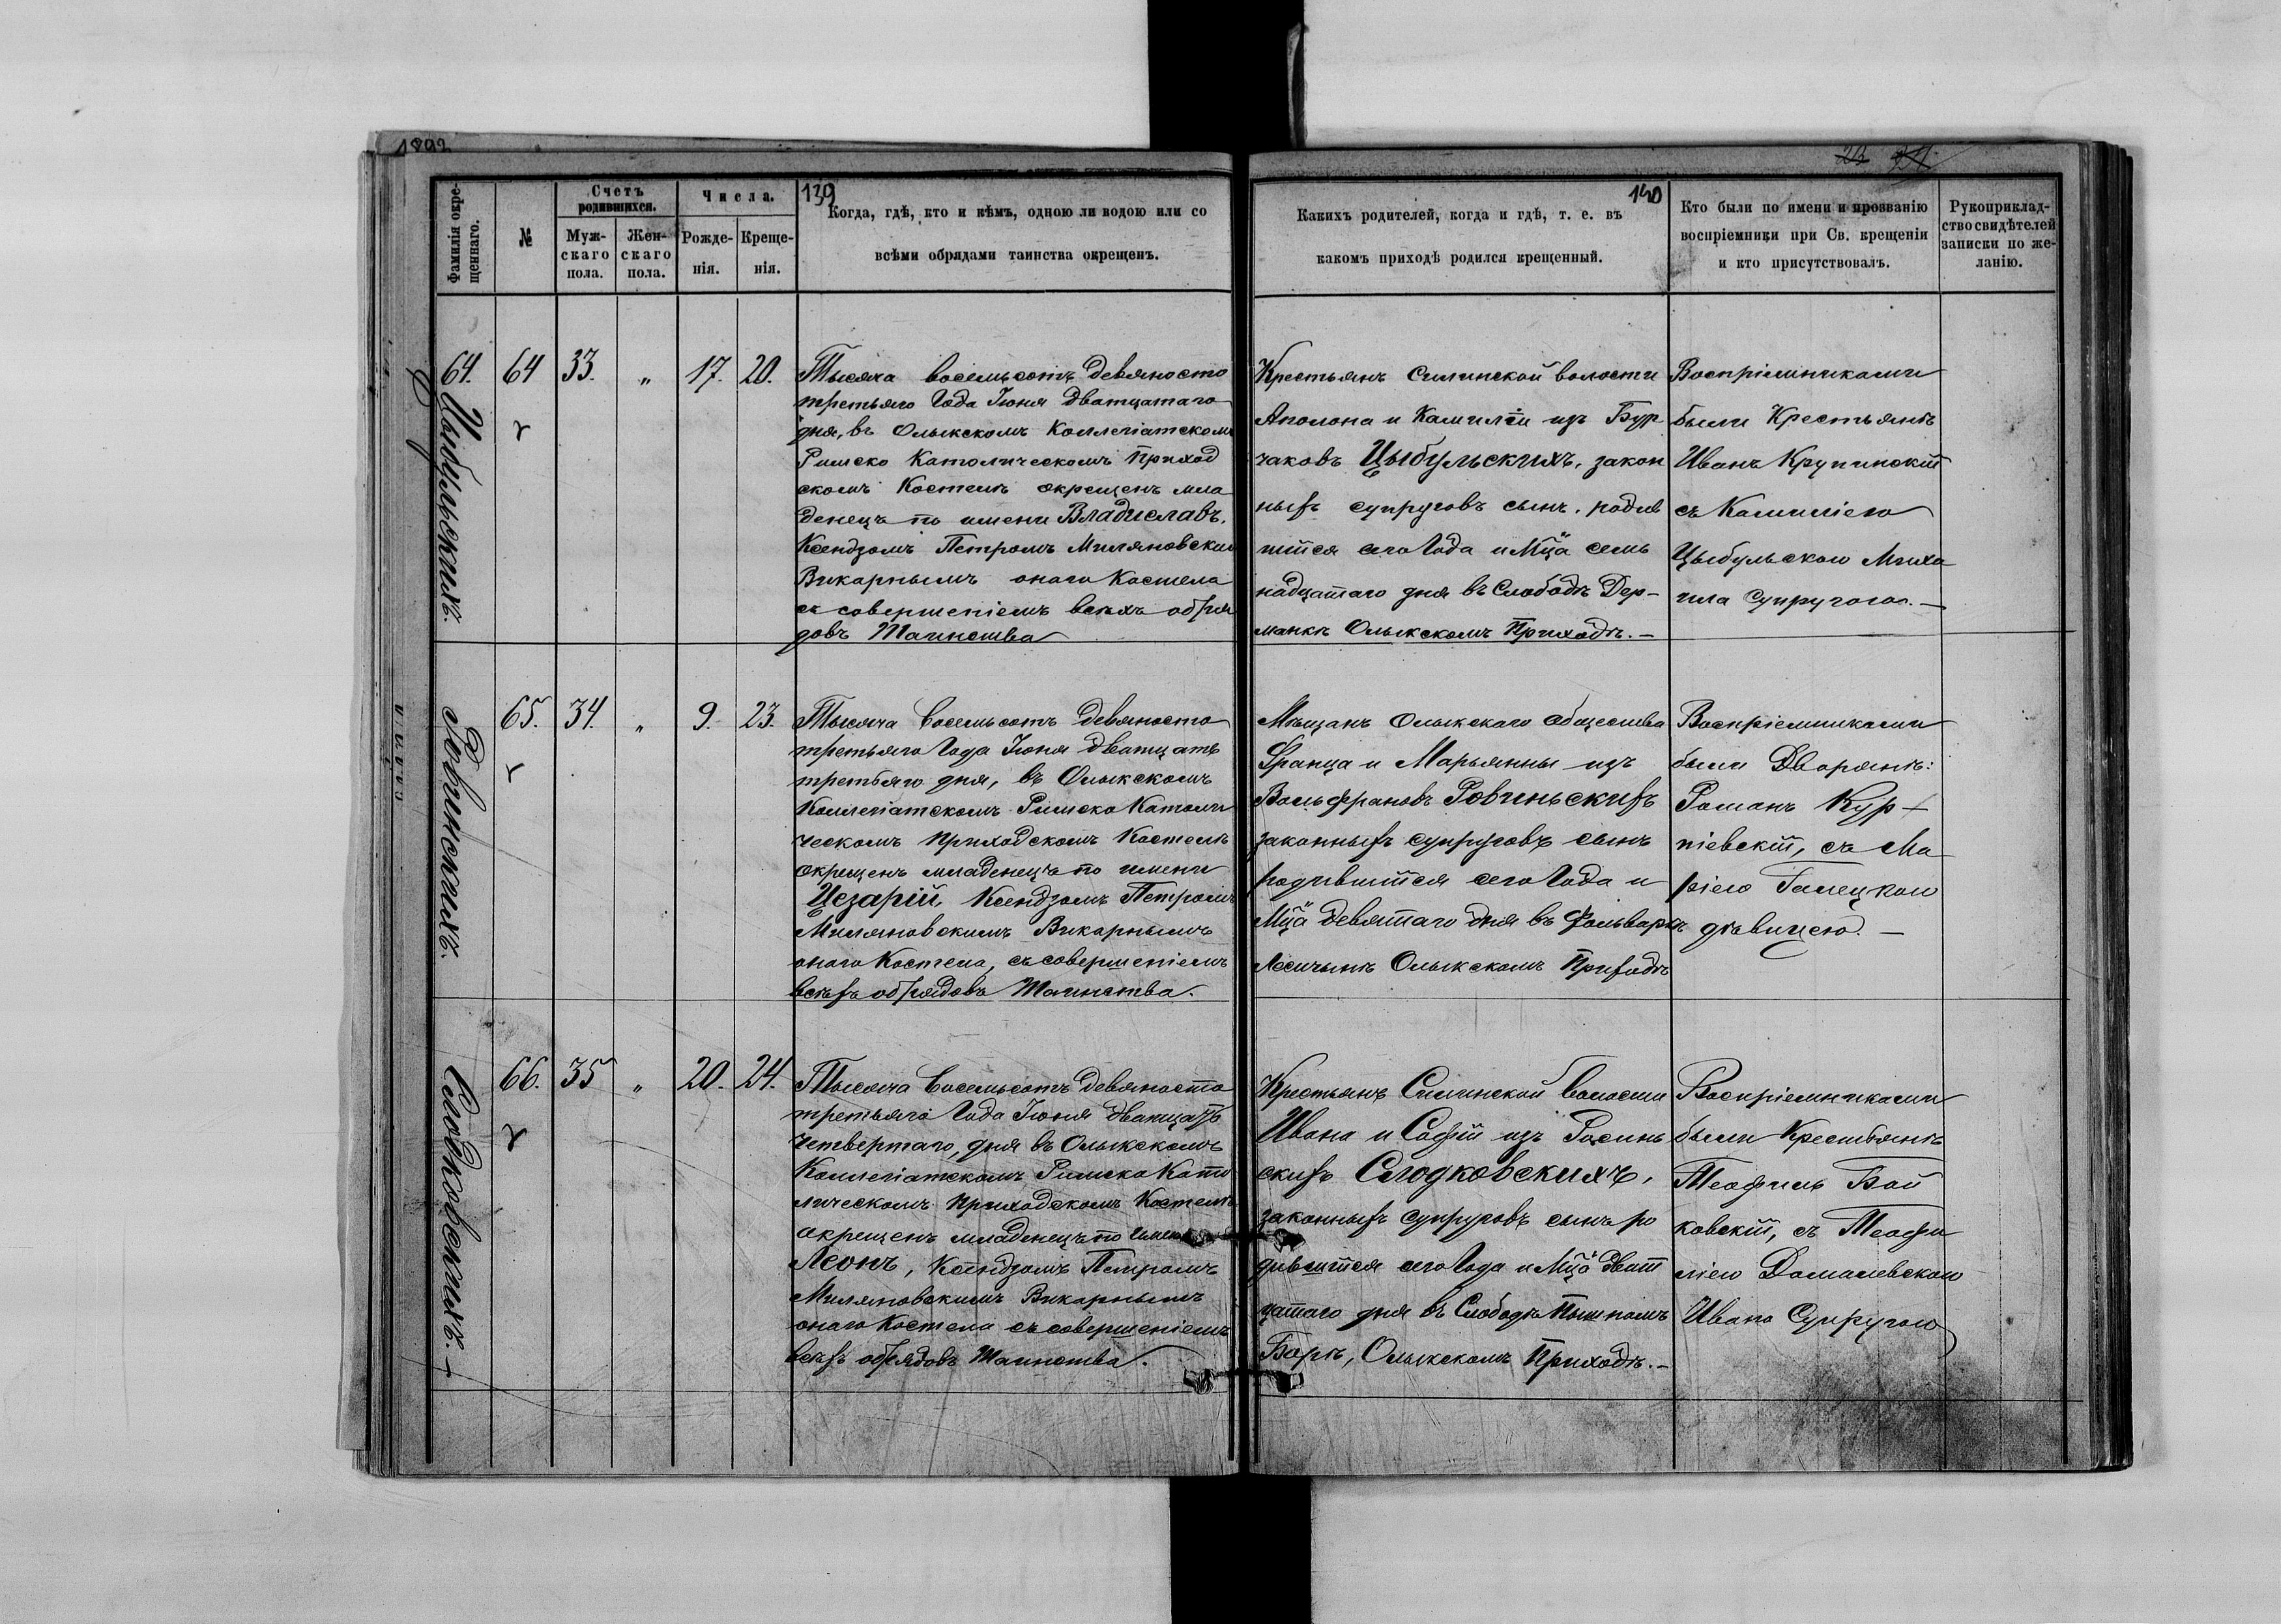 1893
139
140
Фамилія окре-
щеннаго.
№
Счетъ
родившихся.
Муж-
скаго
пола.
Жен-
скаго
пола.
Числа.
Рожде-
нія.
Креще-
нія.
Когда, гдѣ, кто и кѣмъ, одною ли водою или со
всѣми обрядами таинства окрещенъ.
Какихъ родителей, когда и гдѣ, т. е. въ
какомъ приходѣ родился крещенный.
Кто были по имени и прозванію
воспріемники при Св. крещеніи
и кто присутствовалъ.
Рукоприклад-
ство свидѣтелей
записки по же-
ланію.
64. Цыбульскихъ.
64 33. " 17. 20.
Тысяча восемьсотъ девяносто
третьяго Года Іюня дватцатаго
дня, въ Олыкскомъ Коллегіатскомъ
Римско Католическомъ Приход
скомъ Костелѣ окрещенъ мла
денецъ по имени Владиславъ,
Ксендзомъ Петромъ Миляновским
Викарнымъ онаго Костела
съ совершеніемъ всѣхъ обря
довъ Таинства
Крестьянъ Силинской волости
Аполона и Камиліи изъ Бур
чаковъ Цыбульскихъ, закон
ныхъ супруговъ сынъ, родив
шійся сего Года и Мца семь
надцатаго дня въ Слободѣ Дер-
манкѣ Олыкскомъ Приходѣ.—
Воспріемниками
были Крестьянѣ
Иванъ Крупинскій
съ Камиліею
Цыбульскою Миха
ила Супругою.—
Ровинскихъ.
65. 34. " 9. 23.
Тысяча восемьсотъ девяносто
третьяго Года Іюня дватцать
третьяго дня, въ Олыкскомъ
Коллегіатскомъ Римско Католи
ческомъ Приходскомъ Костелѣ
окрещенъ младенецъ по имени
Цезарій, Ксендзомъ Петромъ
Миляновскимъ Викарнымъ
онаго Костела, съ совершеніемъ
всѣхъ обрядовъ Таинства.
Мѣщанъ Олыкскаго общества
Франца и Марьянны изъ
Вольфрановъ Ровиньскихъ
законныхъ супруговъ сынъ
родившійся сего Года и
Мца девятаго дня въ Фольваркѣ
Олыкскомъ Приходѣ
Воспріемниками
были Дворянѣ:
Романъ Кур-
піевскій, съ Ма
ріею Галецкою
дѣвицею.—
Слодковскихъ.—
66. 35 " 20. 24.
Тысяча восемьсотъ девяносто
третьяго Года Іюня дватцать
четвертаго, дня въ Олыкскомъ
Коллегіатскомъ Римско Като
лическомъ Приходскомъ Костелѣ
окрещенъ младенецъ по имени
Леонъ, Ксендзомъ Петромъ
Миляновскимъ Викарнымъ
онаго Костела съ совершеніемъ
всѣхъ обрядовъ Таинства.
Крестьянъ Силинской волости
Ивана и Софіи изъ Росинь
скихъ Слодковскихъ,
законныхъ супруговъ сынъ ро
дившійся сего Года и Мца дват
цатаго дня въ Слободѣ Пышномъ
Борѣ, Олыкскомъ Приходѣ.—
Воспріемниками
были Крестьянѣ
Теофиль Бой
ковскій, съ Теофи
ліею Домалевскою
Ивана Супругою